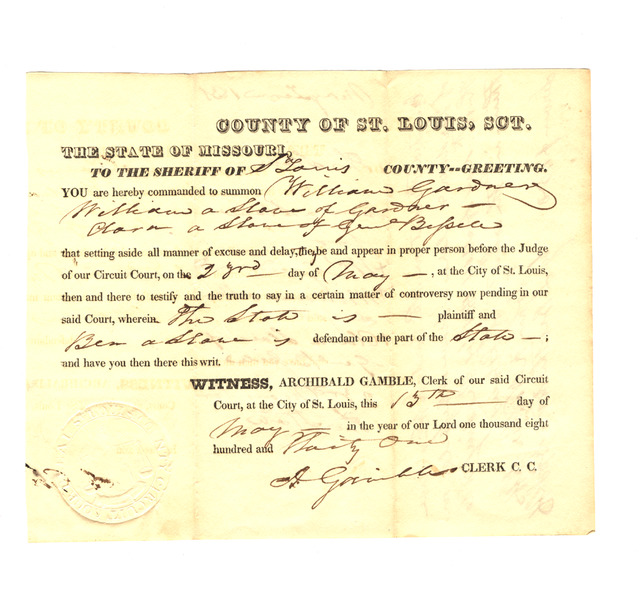 COUNTY OF ST. LOUIS, SCT.
THE STATE OF MISSOURI,
TO THE SHERIFF OF St Louis COUNTY--GREETING.
YOU are hereby commanded to summon William Gardner
William a Slave of Gardner —
Clara a Slave of Genl Bissell
that setting aside all manner of excuse and delay, they be and appear in proper person before the Judge
of our Circuit Court, on the 23rd day of May —, at the City of St. Louis,
then and there to testify and the truth to say in a certain matter of controversy now pending in our
said Court, wherein The State is — plaintiff and
Ben a Slave is defendant on the part of the State —;
and have you then there this writ.
WITNESS, ARCHIBALD GAMBLE, Clerk of our said Circuit
Court, at the City of St. Louis, this 15th — day of
May — in the year of our Lord one thousand eight
hundred and Thirty One
A Gamble CLERK C. C.